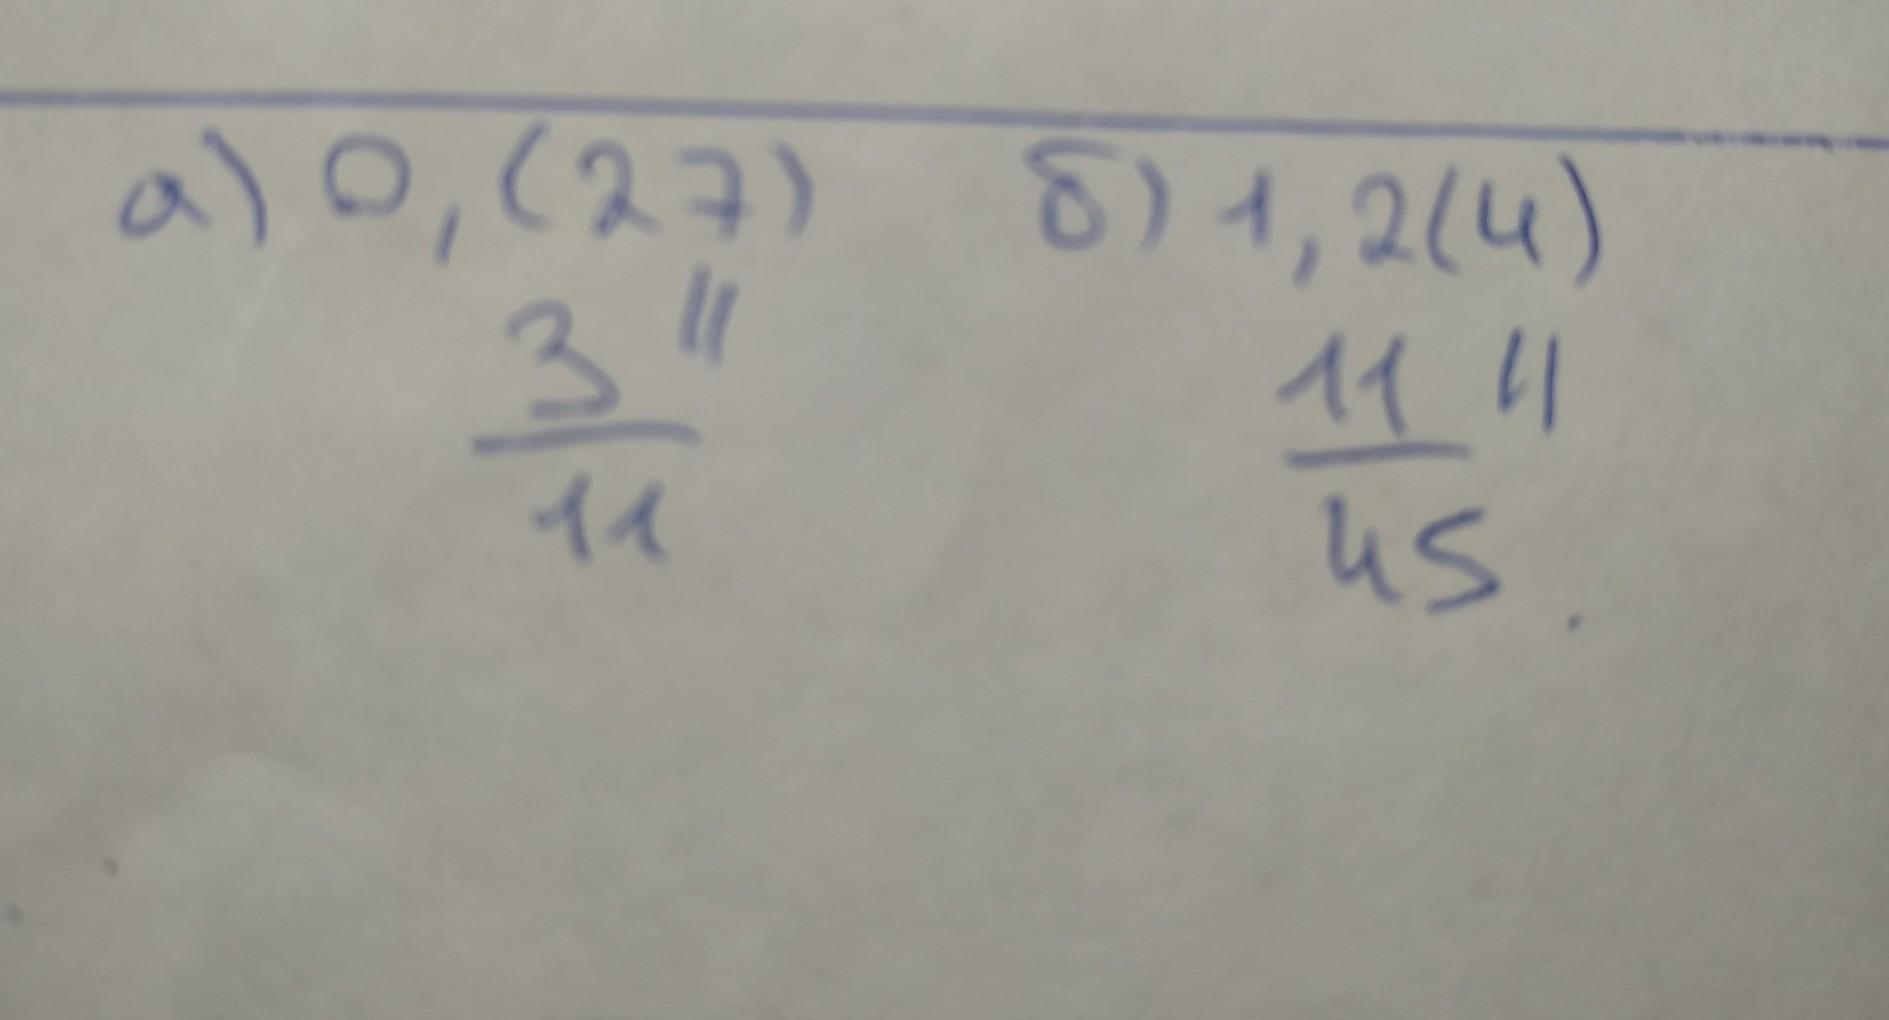 а) 0,(27) б) 1,2(4)
3 || 11 ||
11 45.